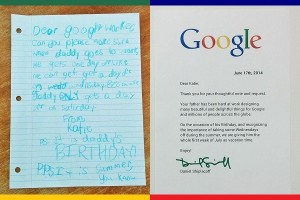 Dear google worker
Can you Please make sure
when daddy goes to work
he gets one day off
he can get a day off
on wednesday Because
Daddy ONLY gets a day
on a saturday
From
Katie
it is daddy's
BIRTHDAY!
is summer
You know
Google
June 17th, 2014
Dear Katie,
Thank you for your thoughtful note and request.
Your father has been hard at work designing
many beautiful and delightful things for Google
and millions of people across the globe.
On the occasion of his Birthday, and recognizing
the importance of taking some Wednesdays
off during the summer, we are giving him the
whole first week of July as vacation time.
Enjoy!
Daniel Shiplacoff